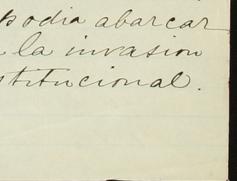 podia abarcar
la invasion
stitucional.